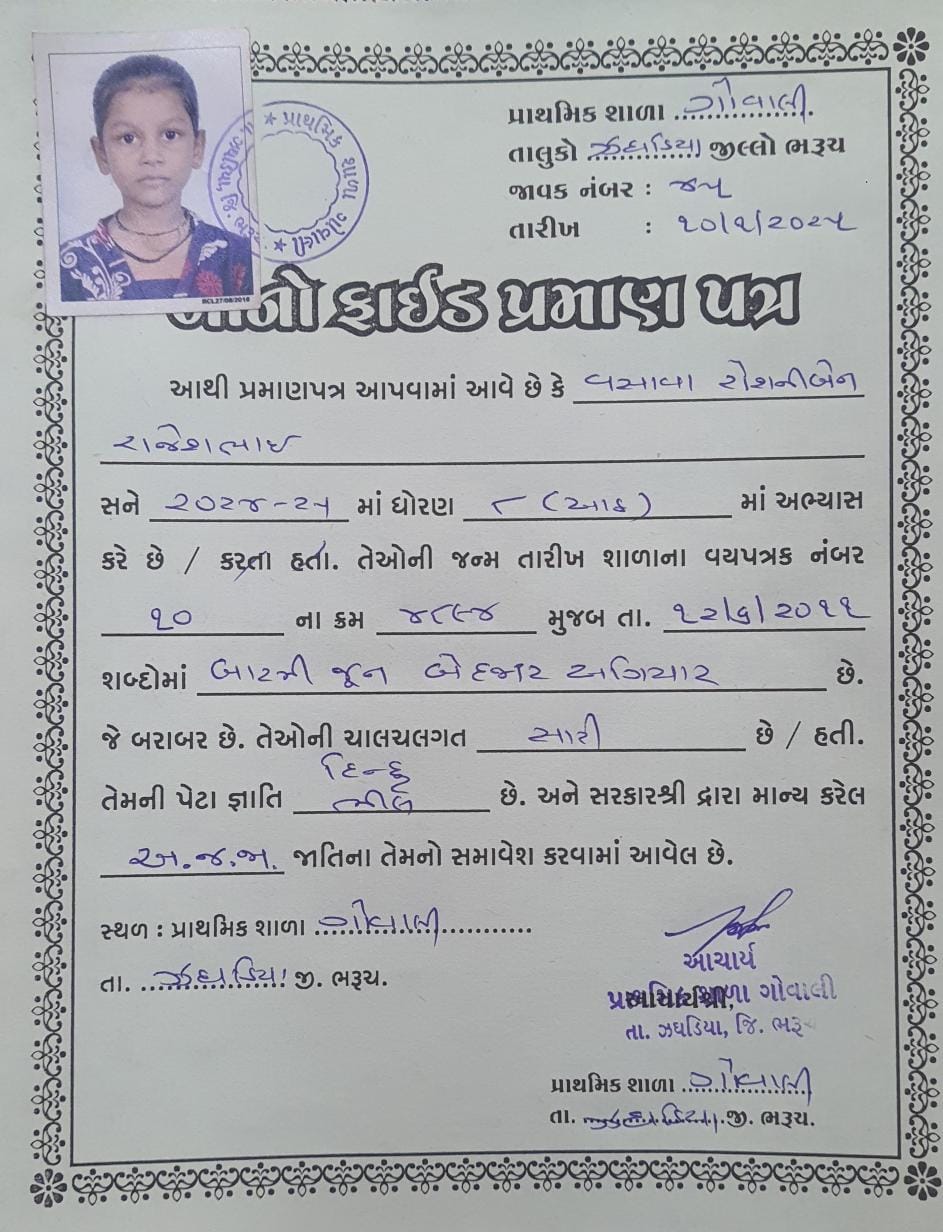 પ્રાથમિક શાળા ગોવાલી
તાલુકો ઝઘડિયા જીલ્લો ભરૂચ
જાવક નંબર : ૪૫
તારીખ : ૧૦/૧/૨૦૨૫
પ્રાથમિક શાળા ગોવાલી
BCL27/08/2016
બોનો ફાઈડ પ્રમાણ પત્ર
આથી પ્રમાણપત્ર આપવામાં આવે છે કે વસાવા રોશનીબેન
રાજેશભાઈ
સને ૨૦૨૪-૨૫ માં ધોરણ ૮ (આઠ) માં અભ્યાસ
કરે છે / કરતા હતા. તેઓની જન્મ તારીખ શાળાના વયપત્રક નંબર
૧૦ ના ક્રમ ૪૮૯૪ મુજબ તા. ૧૨/૬/૨૦૧૧
શબ્દોમાં બારમી જૂન બેહજાર અગિયાર છે.
જે બરાબર છે. તેઓની ચાલચલગત સારી છે / હતી.
હિન્દુ
તેમની પેટા જ્ઞાતિ ભીલ છે. અને સરકારશ્રી દ્વારા માન્ય કરેલ
અ.જ.જા. જાતિના તેમનો સમાવેશ કરવામાં આવેલ છે.
સ્થળ : પ્રાથમિક શાળા ગોવાલી
તા. ઝઘડિયા જી. ભરૂચ.
આચાર્ય
પ્રાથમિક શાળા ગોવાલી
તા. ઝઘડિયા, જિ. ભરૂચ
પ્રાથમિક શાળા ગોવાલી
તા. ઝઘડિયા જી. ભરૂચ.